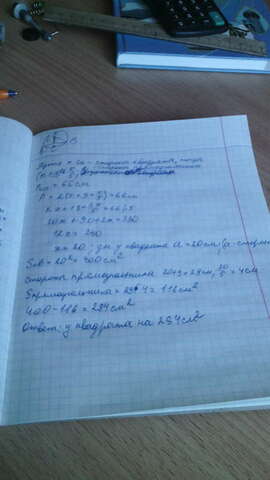 Пусть x см - сторона квадрата, тогда
Pпр = 66 см
P = 2(x+9+x/5) = 66 см
10x + 90 + 2x = 330
12x = 240
x = 20 : 5 м у квадрата a = 20 см (a-сторона
Sкв = 20² = 400 см²
Стороны прямоугольника 20+9 = 29 см, 20/5 = 4 см
Sпрямоугольника = 29·4 = 116 см²
400-116 = 284 см²
Ответ: у квадрата на 284 см²